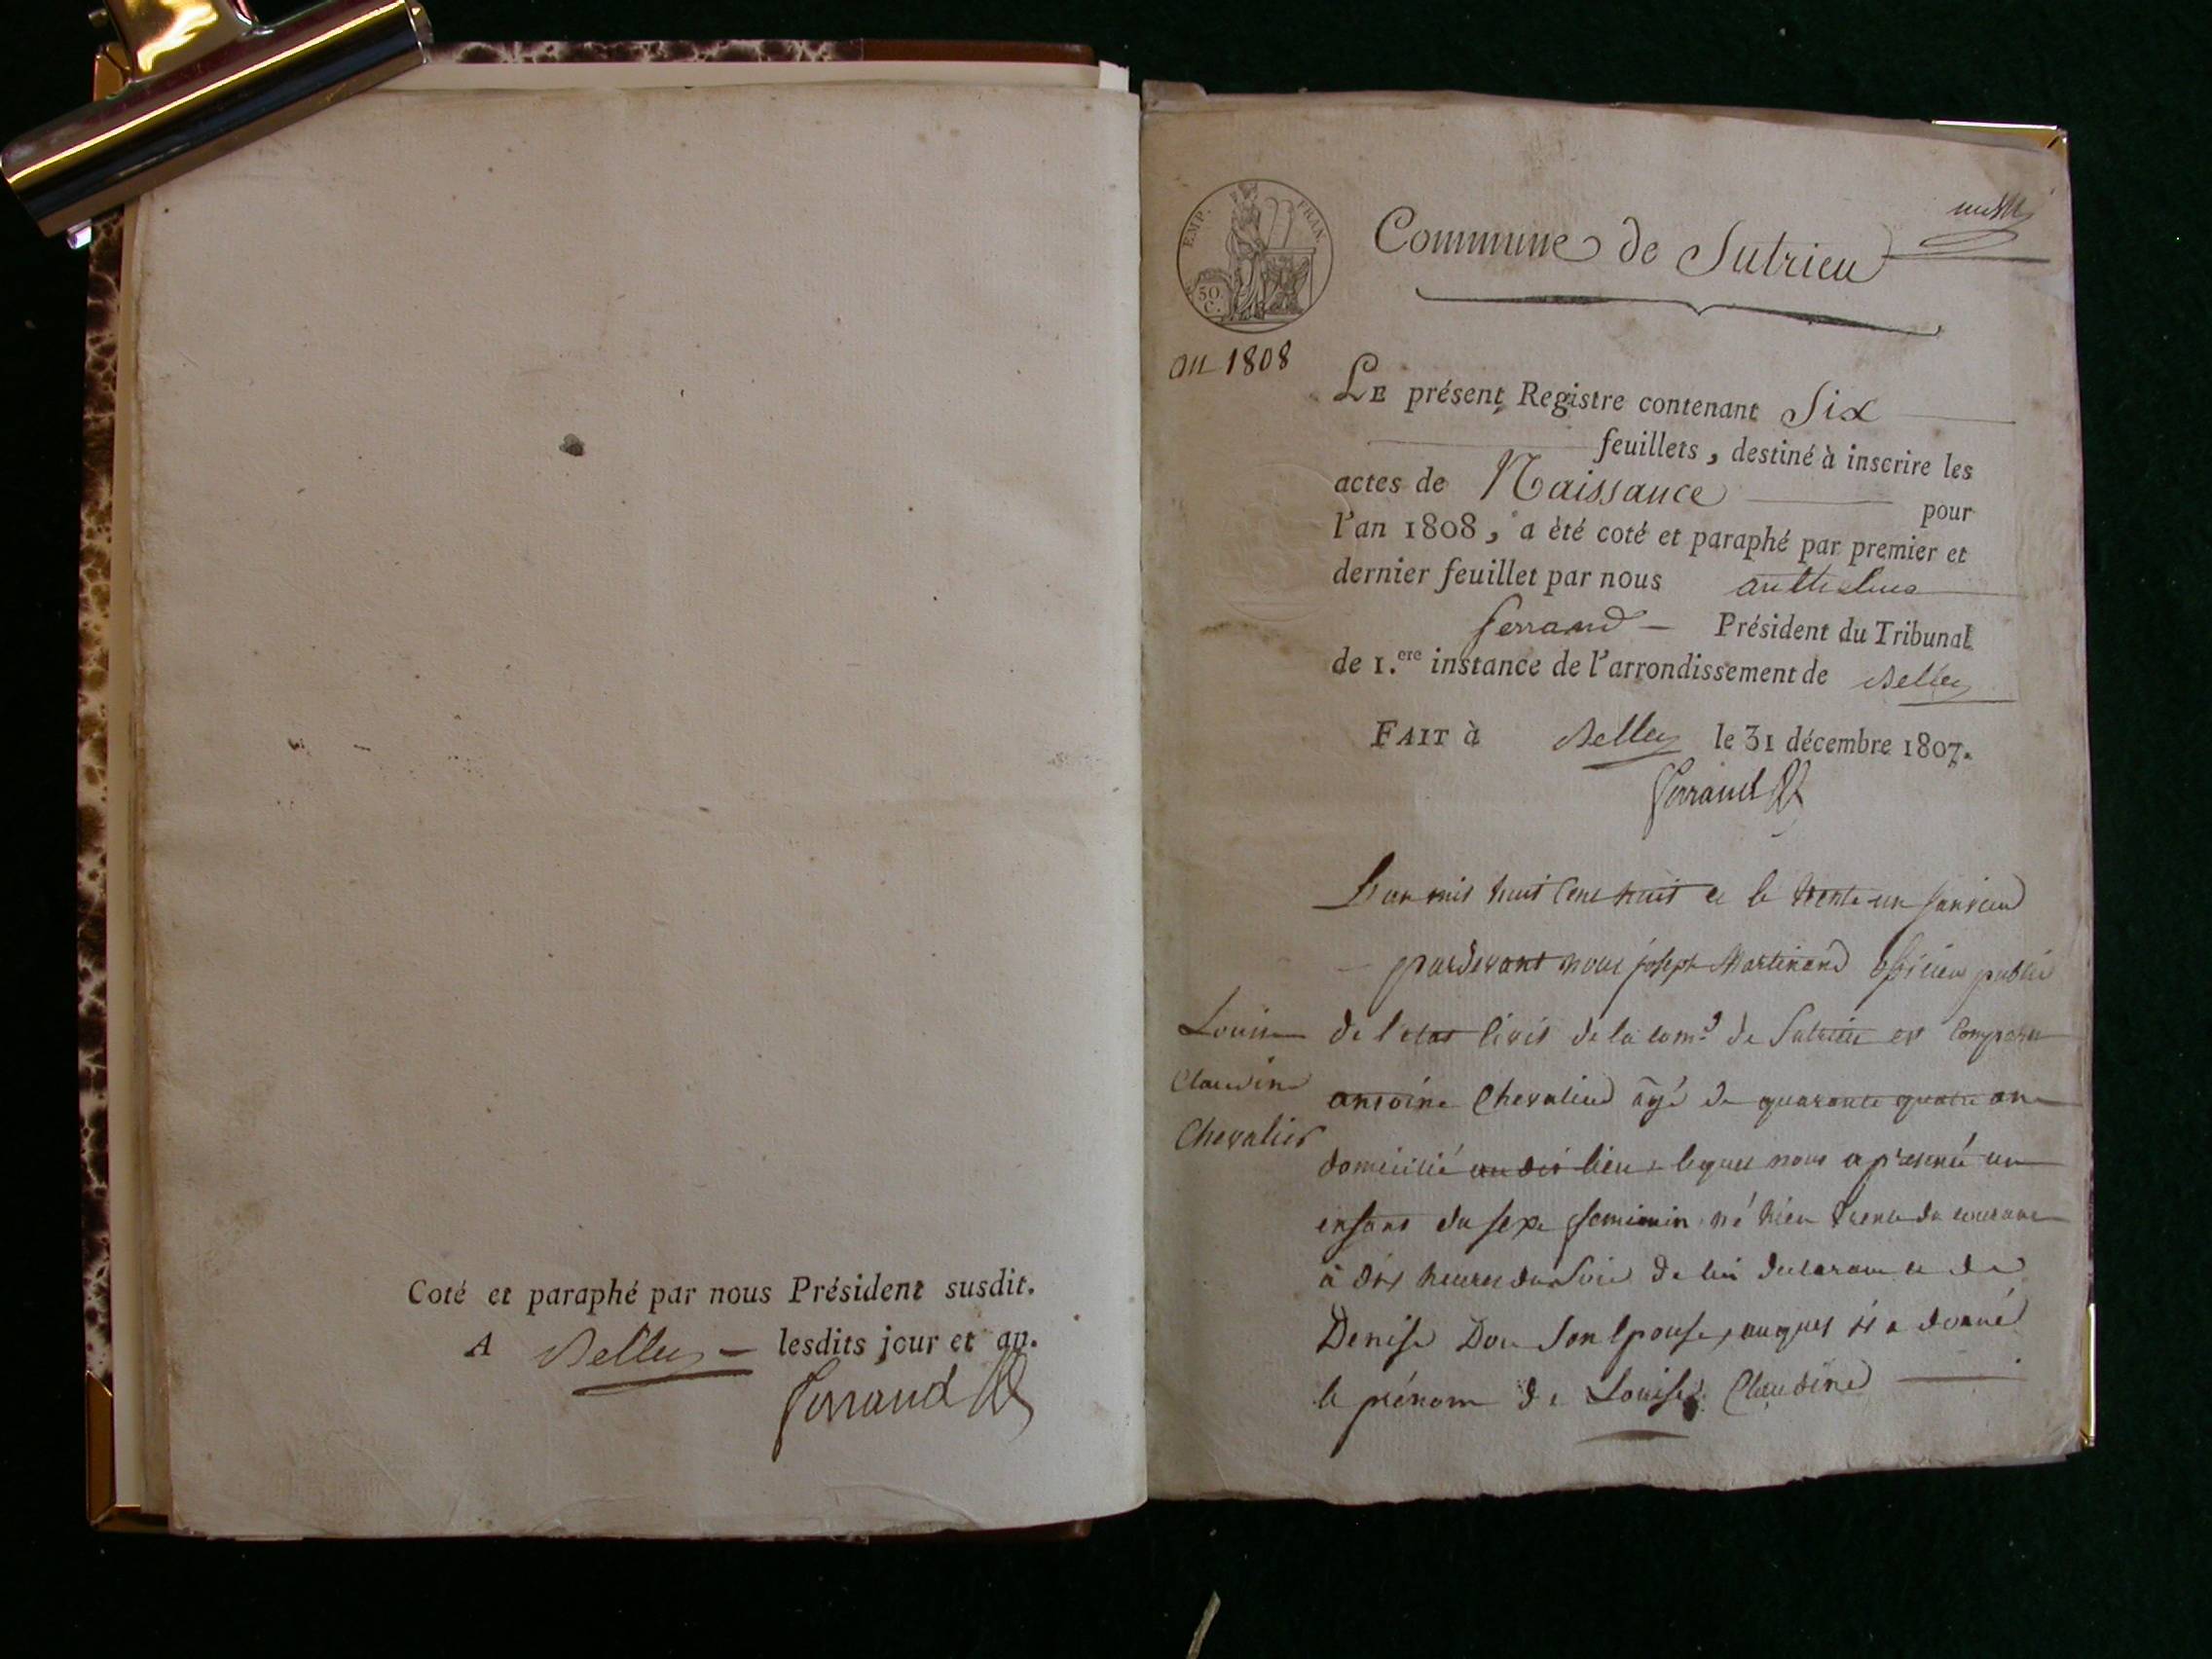 Coté et paraphé par nous Président susdit.
A Belley lesdits jour et an.
Ferrand
EMP. FRAN.
50. C.
Commune de Sutrieu
an 1808
LE présent Registre contenant Six
feuillets, destiné à inscrire les
actes de Naissance pour
l'an 1808, a été coté et paraphé par premier et
dernier feuillet par nous anthelme
ferrand Président du Tribunal
de 1.ere instance de l'arrondissement de Belley
FAIT à Belley le 31 décembre 1807.
Ferrand
L'an mil huit cent huit et le trente un janvier
pardevant nous joseph Martinand officier public
de l'etat civil de la com.e de Sutrieu est comparu
antoine Chevalier âgé de quarante quatre ans
domicilié au dit lieu, lequel nous a présenté un
enfant du sexe feminin né hier trente du courant
à dix heures du soir de lui declarant et de
Denise Don son epouse, auquel il a donné
le prénom de Louise Claudine
Louise
Claudine
Chevalier